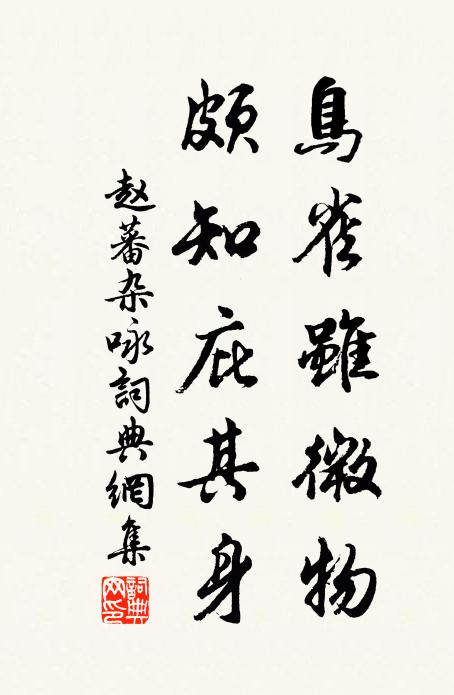 鳥雀雖微物
頗知庇其身
赵蕃杂咏詞典網集
詞典网印